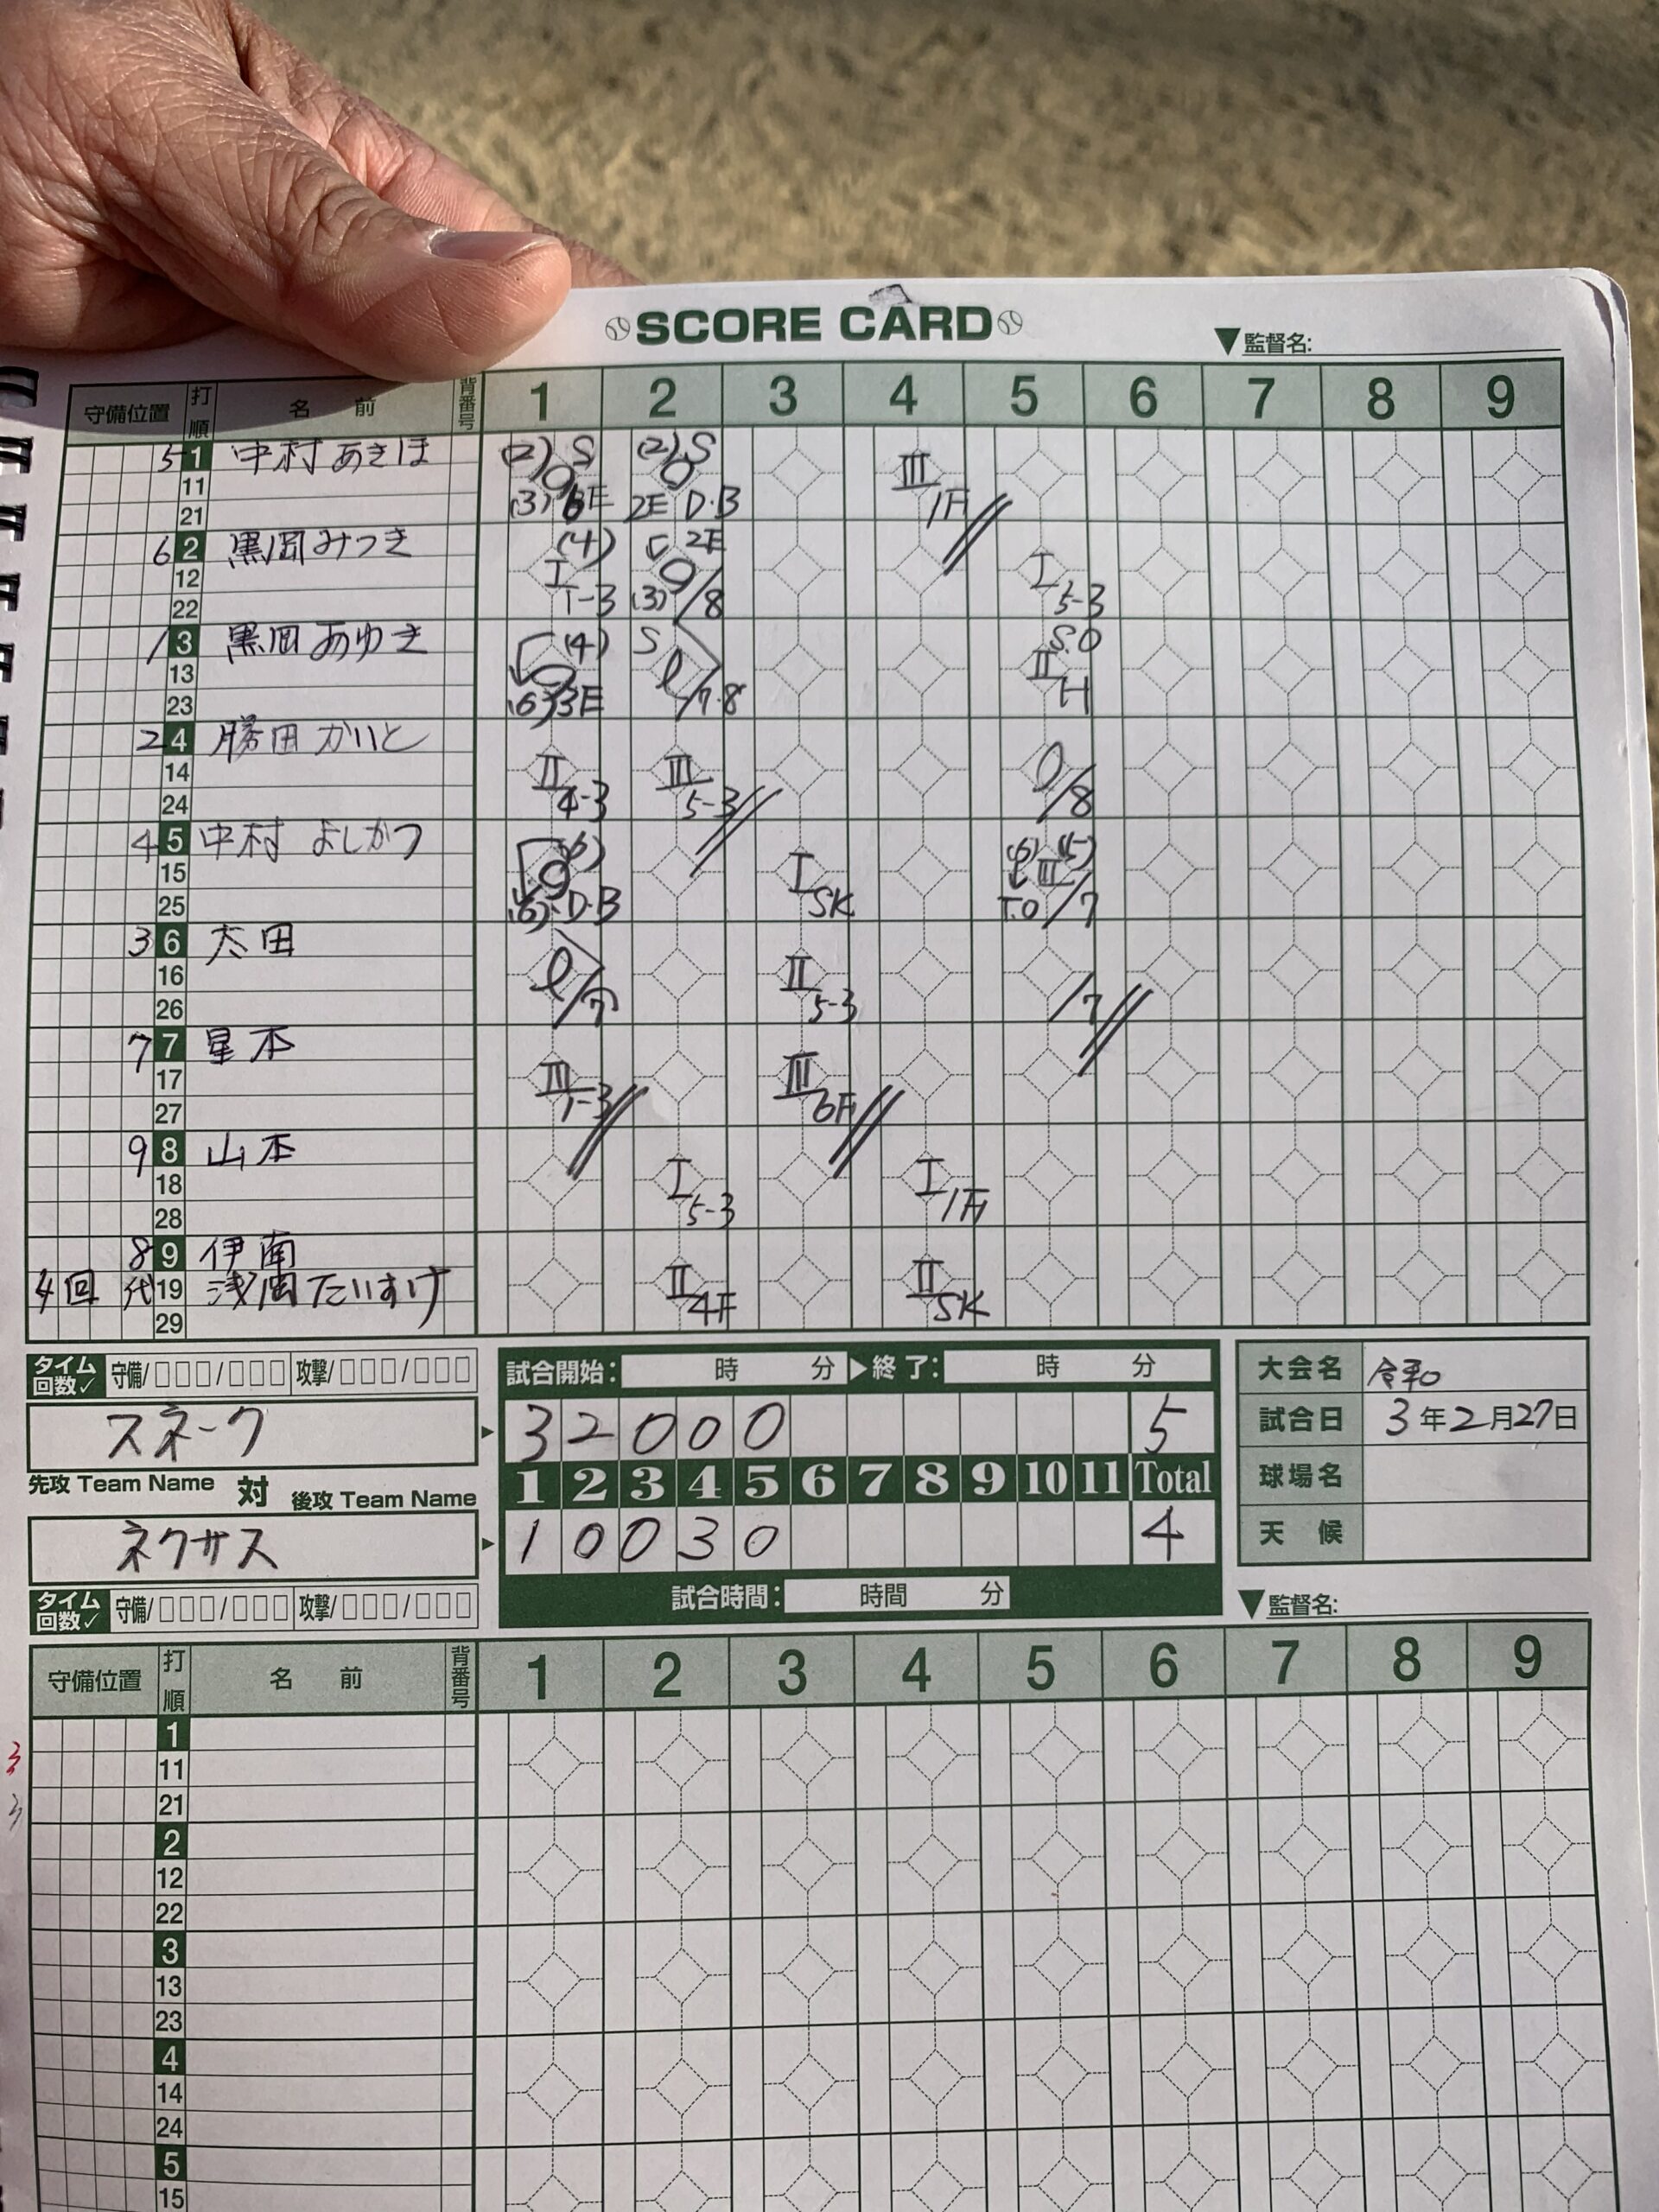 SCORE CARD
▼監督名:
守備位置 打順 名前 背番号 1 2 3 4 5 6 7 8 9
5 1 中村あきほ (2) S (2) S III
11 (3) 6E 2E D・B 1F
21
6 2 黒岡みつき (4) 2E
12 I I
22 1-3 (3) 8 5-3
1 3 黒岡あゆき (4) S S.O
13 l II
23 (6) 3E 7・8 H
2 4 勝田かいと
14 II III
24 4-3 5-3 8
4 5 中村よしかつ (6) (6) (5)
15 I III
25 (6) D・B SK T.O 7
3 6 太田
16 l II
26 7 5-3 7
7 7 星本
17 III III
27 1-3 6F
9 8 山本
18 I I
28 5-3 1F
8 9 伊南
4回 代 19 浅岡たいすけ II II
29 4F SK
タイム回数✓ 守備/□□□/□□□ 攻撃/□□□/□□□
試合開始: 時 分 ▶終了: 時 分
スネーク 3 2 0 0 0 5
先攻 Team Name 対 後攻 Team Name
1 2 3 4 5 6 7 8 9 10 11 Total
ネクサス 1 0 0 3 0 4
タイム回数✓ 守備/□□□/□□□ 攻撃/□□□/□□□
試合時間: 時間 分
大会名 令和
試合日 3年2月27日
球場名
天候
▼監督名:
守備位置 打順 名前 背番号 1 2 3 4 5 6 7 8 9
1
3 11
3 21
2
12
22
3
13
23
4
14
24
5
15